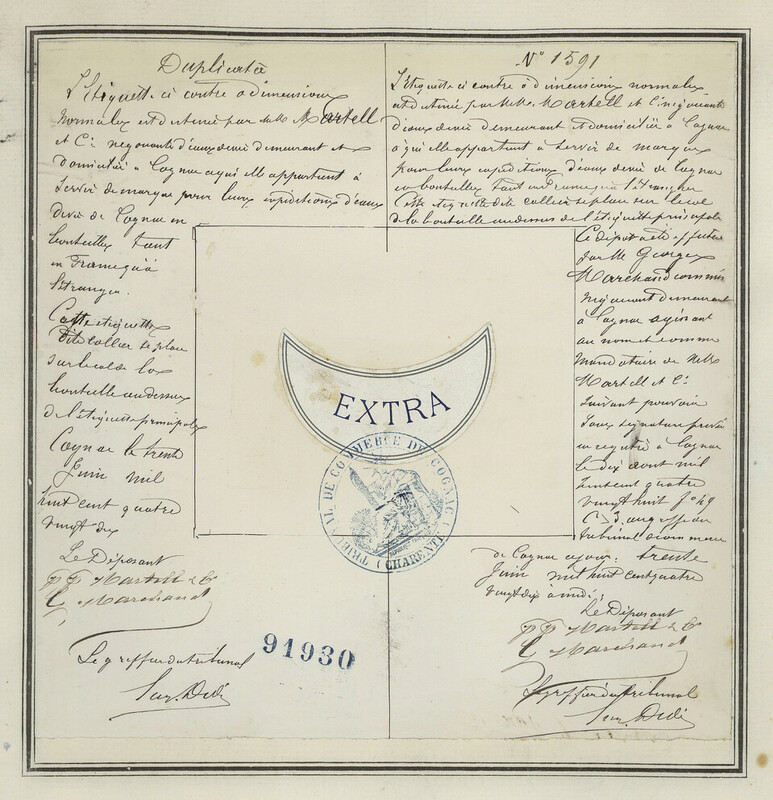 Duplicata
L'étiquette ci contre à dimensions
normales est destinée par MM. Martell
et Cie négociants d'eaux devie demeurant et
domiciliés à Cognac à qui elle appartient à
servir de marque pour leurs expéditions d'eaux
devie de Cognac en
bouteilles tant
en France qu'à
l'étranger.
Cette étiquette
dite collier se place
sur le col de la
bouteille audessus
de l'étiquette principale
Cognac le trente
Juin mil
huit cent quatre
vingt dix
Le Déposant
pp Martell & Co
G Marchand
Le greffier du tribunal
91930
No 1591
L'étiquette ci contre à dimensions normales
est destinée par MM. Martell et Cie négociants
d'eaux devie demeurant et domiciliés à Cognac
à qui elle appartient à servir de marque
pour leurs expéditions d'eaux devie de Cognac
en bouteilles tant en France qu'à l'étranger
Cette étiquette dite collier se place sur le col
de la bouteille audessus de l'étiquette principale
Ce dépôt a été effectué
par M. Georges
Marchand commis
négociant demeurant
à Cognac agissant
au nom et comme
mandataire de MM.
Martell et Cie
suivant pouvoir
sous signature privée
enregistré à Cognac
le dix août mil
huit cent quatre
vingt huit fo 49
C. 3. au greffe du
tribunal de commerce
de Cognac ce jour: trente
Juin mil huit cent quatre
vingt dix à midi;
Le Déposant
pp Martell & Co
G Marchand
Le greffier du tribunal
EXTRA
TRIBUNAL DE COMMERCE DE COGNAC
(CHARENTE)